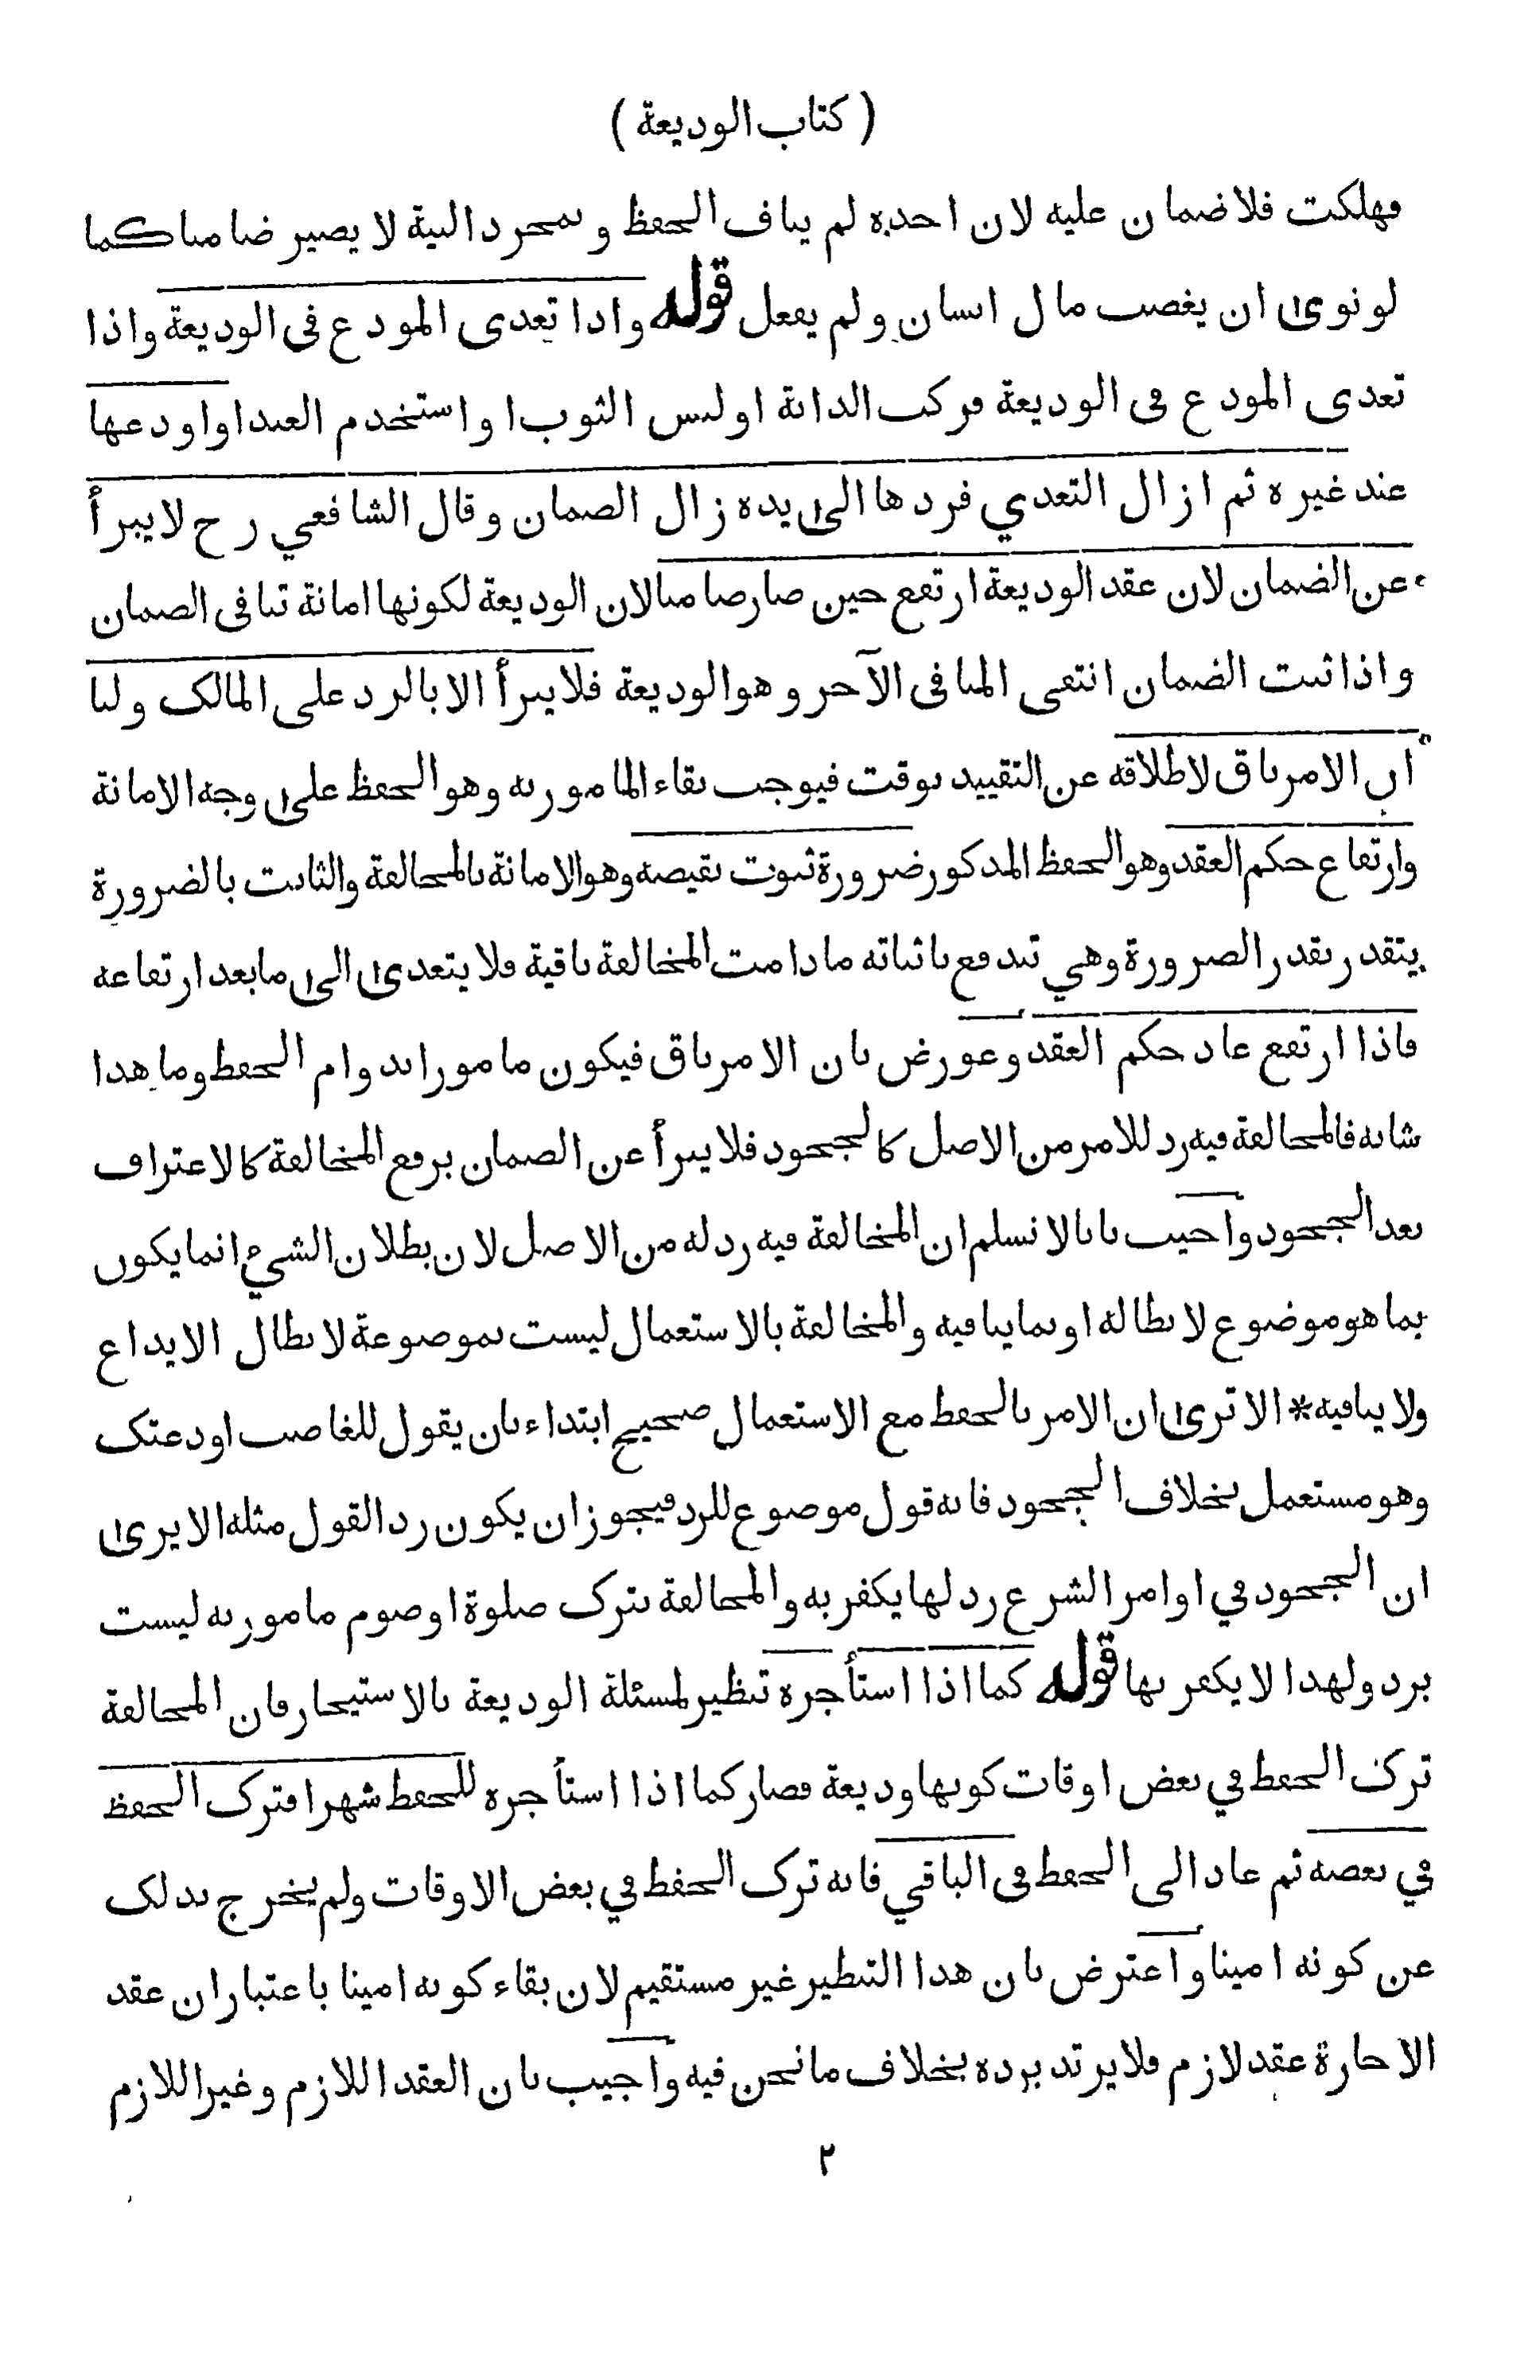 ( كتاب الوديعة )
فهلكت فلا ضمان عليه لان اخذه لم يناف الحفظ وبمجرد النية لا يصير ضامنا كما
لو نوى ان يغصب مال انسان ولم يفعل قوله واذا تعدى المودع فى الوديعة واذا
تعدى المودع فى الوديعة فركب الدابة او لبس الثوب او استخدم العبد او اودعها
عند غيره ثم ازال التعدي فردها الى يده زال الضمان وقال الشافعي رح لا يبرأ
عن الضمان لان عقد الوديعة ارتفع حين صار ضامنا لان الوديعة لكونها امانة تنافى الضمان
واذا ثبت الضمان انتفى المنافى الآخر وهو الوديعة فلا يبرأ الا بالرد على المالك ولنا
ان الامر باق لاطلاقه عن التقييد بوقت فيوجب بقاء المامور به وهو الحفظ على وجه الامانة
وارتفاع حكم العقد وهو الحفظ المذكور ضرورة ثبوت نقيضه وهو الامانة بالمخالفة والثابت بالضرورة
يتقدر بقدر الضرورة وهي تندفع باثباته ما دامت المخالفة باقية فلا يتعدى الى ما بعد ارتفاعه
فاذا ارتفع عاد حكم العقد وعورض بان الامر باق فيكون مامورا بدوام الحفظ وما هذا
شانه فالمخالفة فيه رد للامر من الاصل كالجحود فلا يبرأ عن الضمان برفع المخالفة كالاعتراف
بعد الجحود واجيب بانا لا نسلم ان المخالفة فيه رد له من الاصل لان بطلان الشيء انما يكون
بما هو موضوع لابطاله او بما ينافيه والمخالفة بالاستعمال ليست بموضوعة لابطال الايداع
ولا ينافيه * الا ترى ان الامر بالحفظ مع الاستعمال صحيح ابتداء بان يقول للغاصب اودعتك
وهو مستعمل بخلاف الجحود فانه قول موضوع للرد فيجوز ان يكون رد القول مثله الا يرى
ان الجحود في اوامر الشرع رد لها يكفر به والمخالفة بترك صلوة او صوم مامور به ليست
برد ولهذا لا يكفر بها قوله كما اذا استأجره تنظير لمسئلة الوديعة بالاستيجار فان المخالفة
ترك الحفظ في بعض اوقات كونها وديعة فصار كما اذا استأجره للحفظ شهرا فترك الحفظ
في بعضه ثم عاد الى الحفظ فى الباقي فانه ترك الحفظ في بعض الاوقات ولم يخرج بذلك
عن كونه امينا واعترض بان هذا التنظير غير مستقيم لان بقاء كونه امينا باعتبار ان عقد
الاجارة عقد لازم فلا يرتد برده بخلاف ما نحن فيه واجيب بان العقد اللازم وغير اللازم
٢